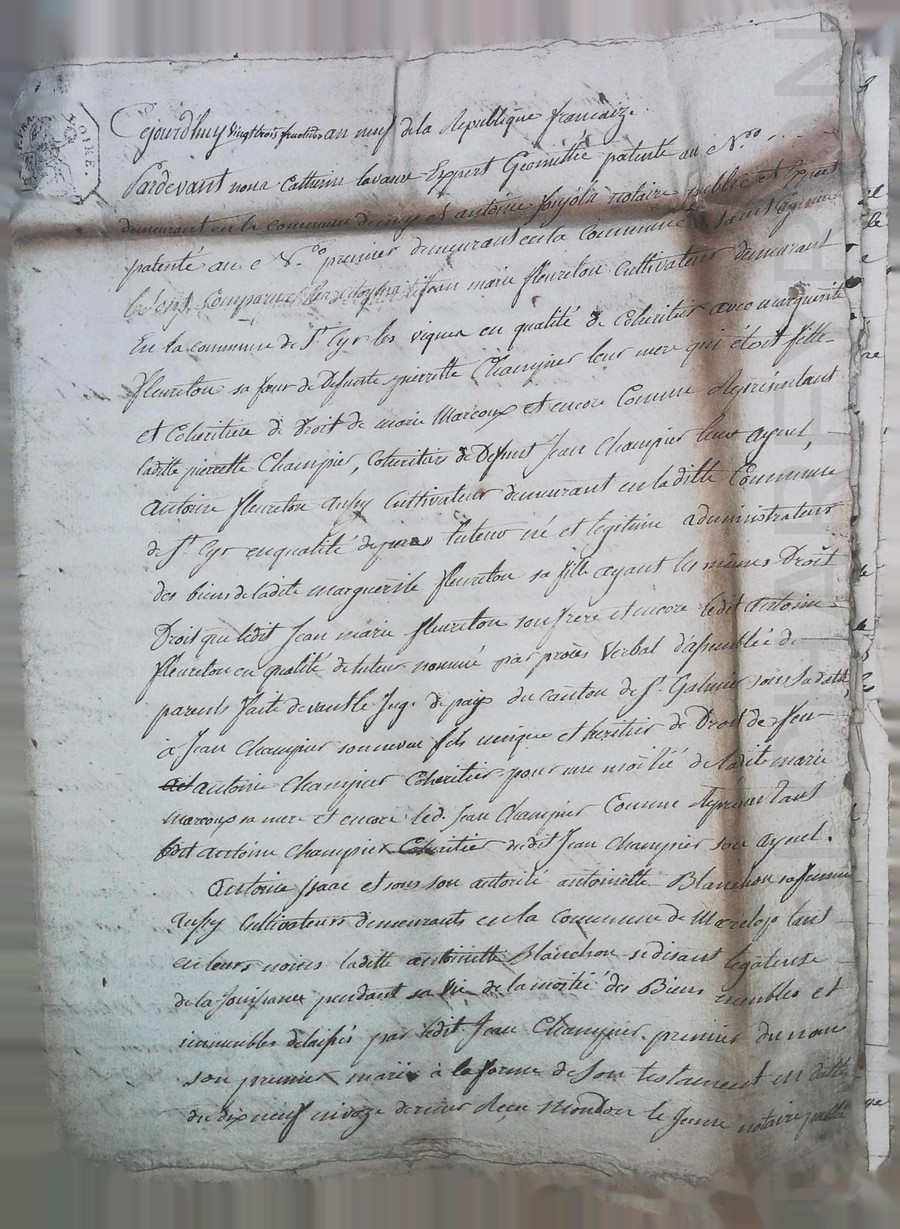 OIRE.
Cejourdhuy vingt trois fructidor an neuf de la Republique francaize.
Pardevant nous Catherin lavaure Expert Geométre patenté au N.ro
demeurant en la commune de et antoine notaire public et Expert
patenté au N.ro premier demeurant en la Commune de saint
le Jean marie fleureton Cultivateur demeurant
En la commune de S.t Cyr les vignes en qualité de Coheritier avec marguerite
fleureton sa sœur de Defunte pierrette Champier leur mere qui étoit fille
et Coheritiere de Droit de marie Marcoux et encore Comme Représentant
ladite pierrette Champier, Coheritiers de Defunt Jean Champier leur ayeul,
antoine fleureton aussy Cultivateur demeurant en laditte Commune
de S.t Cyr en qualité de tuteur né et legitime administrateur
des biens de ladite marguerite fleureton sa fille ayant les mêmes Droit
Droit que ledit Jean marie fleureton son frere et encore ledit antoine
fleureton en qualité de tuteur nommé par procès Verbal d'assemblée de
parents faite devant le Juge de paix du canton de S.t Galmier sous sa datte,
à Jean Champier son neveu fils unique et heritier de Droit de feu
antoine Champier Coheritier pour une moitié de ladite marie
marcoux sa mere et encore led. Jean Champier Comme Representant
ledit antoine Champier Coheritier dudit Jean Champier son ayeul.
Antoine Isaac et sous son autorité antoinette Blanchon sa femme
aussy Cultivateurs demeurants en la commune de Marclop tant
en leurs noms ladite antoinette Blanchon se disant legatense
de la Jouissance pendant sa vie de la moitié des Biens meubles et
immeubles délaissés par ledit Jean Champier premier du nom
son premier mari à la forme de son testament en datte
du dix neuf nivoze dernier Reçu Mondon le Jeune notaire public